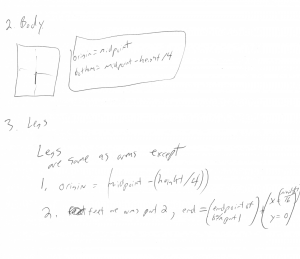 2 Body
origin = midpoint
bottom = midpoint - height/4
3. Legs
Legs
are same as arms except
1. origin = (midpoint - (height/4))
2. feet we want put 2, end = (endpoint of
put 1) (x
y = 0)